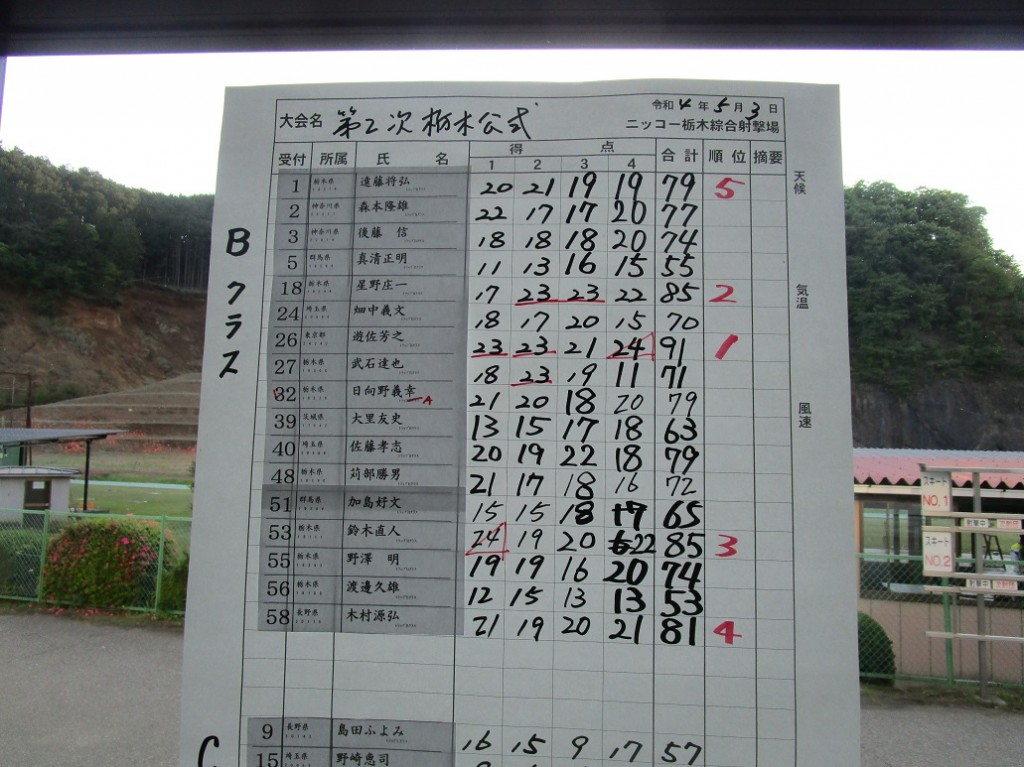 令和 4 年 5 月 3 日
大会名 第2次栃木公式 ニッコー栃木綜合射撃場
受付 所属 氏 名 得 点 合計 順位 摘要
1 2 3 4
天候
気温
風速
Bクラス
1 栃木県 遠藤将弘 20 21 19 19 79 5
2 神奈川県 森本隆雄 22 17 17 20 77
3 神奈川県 後藤 信 18 18 18 20 74
5 群馬県 真清正明 11 13 16 15 55
18 栃木県 星野庄一 17 23 23 22 85 2
24 埼玉県 畑中義文 18 17 20 15 70
26 東京都 遊佐芳之 23 23 21 24 91 1
27 栃木県 武石達也 18 23 19 11 71
32 栃木県 日向野義幸 A 21 20 18 20 79
39 茨城県 大里友史 13 15 17 18 63
40 埼玉県 佐藤孝志 20 19 22 18 79
48 栃木県 苅部勝男 21 17 18 16 72
51 群馬県 加島好文 15 15 18 17 65
53 栃木県 鈴木直人 24 19 20 22 85 3
55 栃木県 野澤 明 19 19 16 20 74
56 栃木県 渡邊久雄 12 15 13 13 53
58 長野県 木村源弘 21 19 20 21 81 4
C
9 長野県 島田ふよみ 16 15 9 17 57
15 埼玉県 野崎恵司
スキート
NO.1
スキート
NO.2